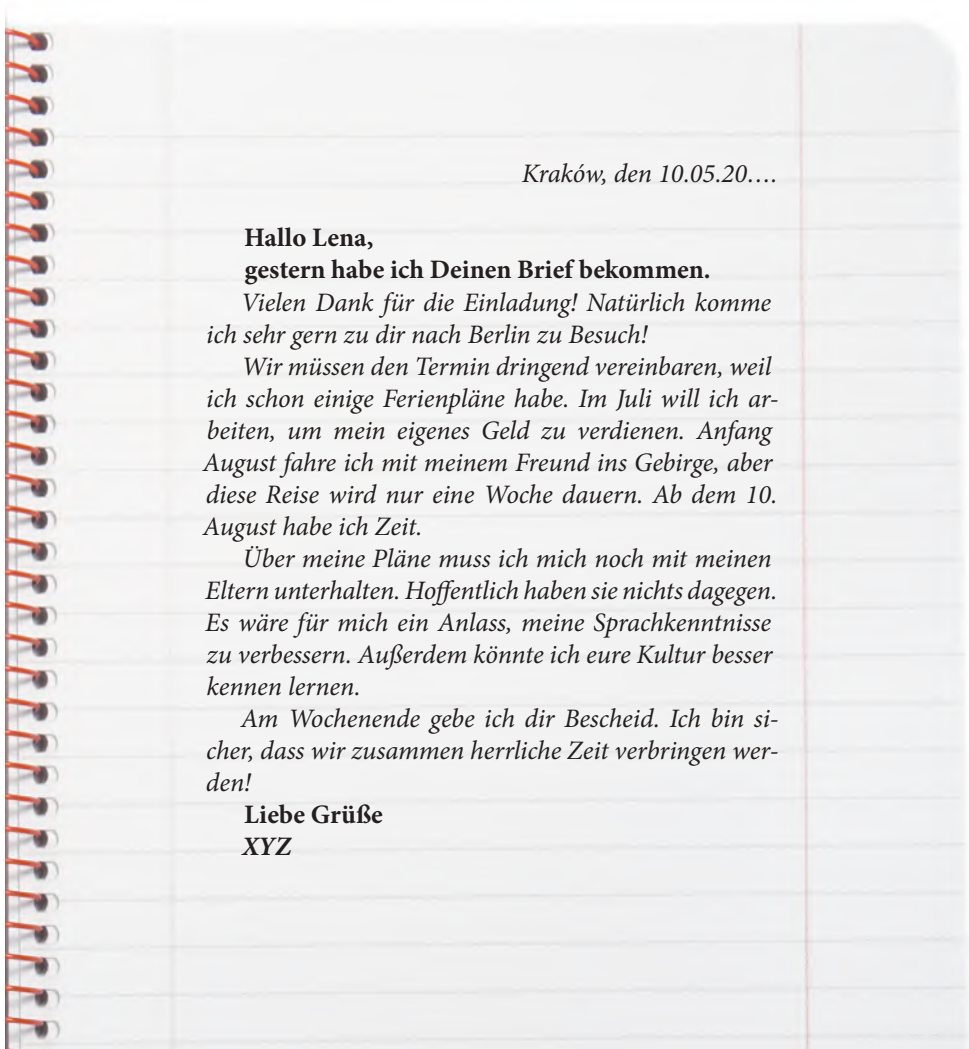 Kraków, den 10.05.20....
Hallo Lena,
gestern habe ich Deinen Brief bekommen.
Vielen Dank für die Einladung! Natürlich komme
ich sehr gern zu dir nach Berlin zu Besuch!
Wir müssen den Termin dringend vereinbaren, weil
ich schon einige Ferienpläne habe. Im Juli will ich ar-
beiten, um mein eigenes Geld zu verdienen. Anfang
August fahre ich mit meinem Freund ins Gebirge, aber
diese Reise wird nur eine Woche dauern. Ab dem 10.
August habe ich Zeit.
Über meine Pläne muss ich mich noch mit meinen
Eltern unterhalten. Hoffentlich haben sie nichts dagegen.
Es wäre für mich ein Anlass, meine Sprachkenntnisse
zu verbessern. Außerdem könnte ich eure Kultur besser
kennen lernen.
Am Wochenende gebe ich dir Bescheid. Ich bin si-
cher, dass wir zusammen herrliche Zeit verbringen wer-
den!
Liebe Grüße
XYZ